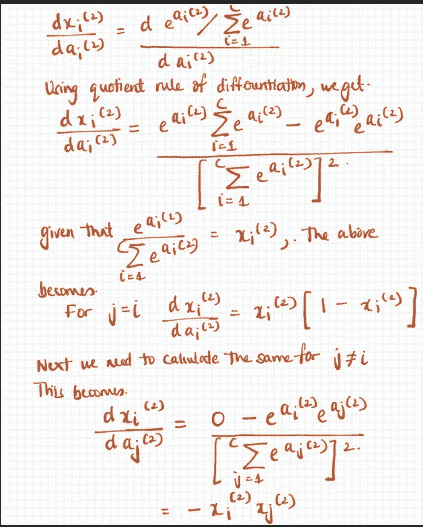 dxi⁽²⁾/dai⁽²⁾ = d e^(ai⁽²⁾) / Σ(i=1 to C) e^(ai⁽²⁾) / d ai⁽²⁾
Using quotient rule of diffountiation, we get.
dxi⁽²⁾/dai⁽²⁾ = (e^(ai⁽²⁾) Σ(i=1 to C) e^(ai⁽²⁾) − e^(ai⁽²⁾) e^(ai⁽²⁾)) / [Σ(i=1 to C) e^(ai⁽²⁾)]².
given that e^(ai⁽²⁾) / Σ(i=1 to C) e^(ai⁽²⁾) = xi⁽²⁾,. The above
becomes.
For j=i dxi⁽²⁾/dai⁽²⁾ = xi⁽²⁾ [1 − xi⁽²⁾]
Next we need to calculate the same for j≠i
This becomes.
dxi⁽²⁾/daj⁽²⁾ = (0 − e^(ai⁽²⁾) e^(aj⁽²⁾)) / [Σ(j=1 to C) e^(aj⁽²⁾)]².
= − xi⁽²⁾ xj⁽²⁾